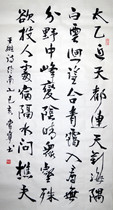 太乙近天都連天到海隅
白雲迴望合青靄入看無
分野中峰變陰晴眾壑殊
欲投人處宿隔水問樵夫
王維詩終南山己亥